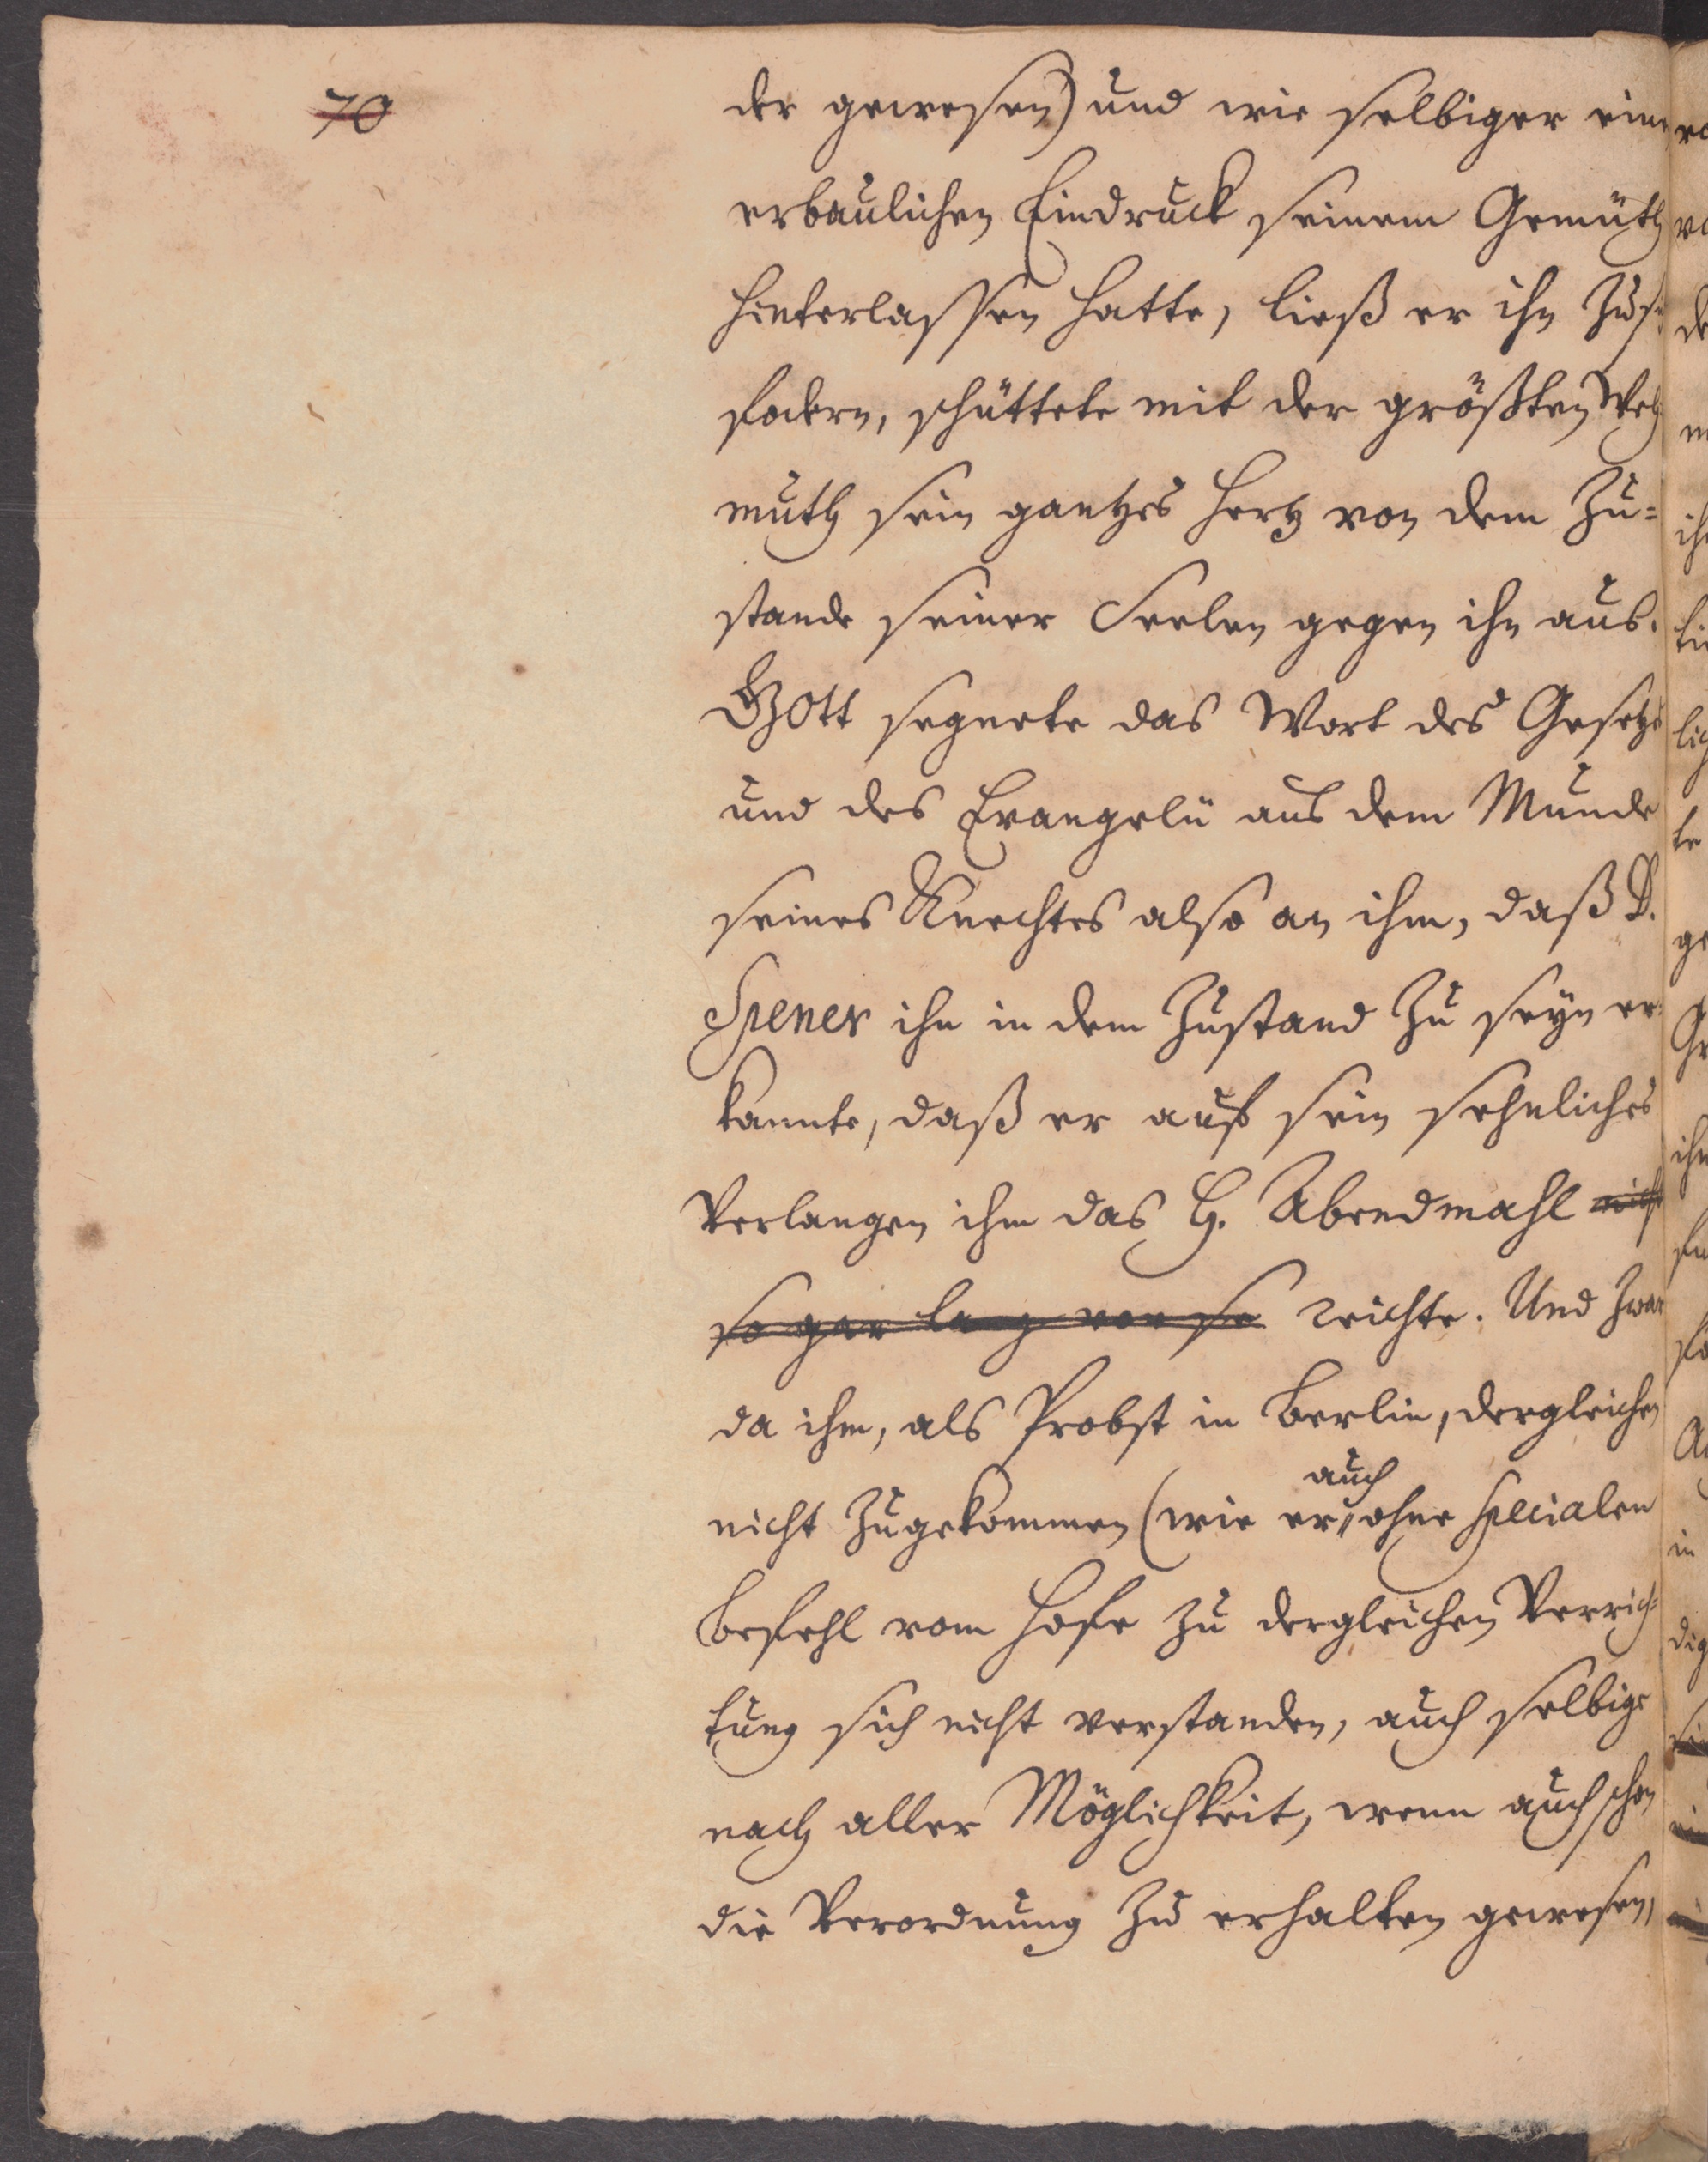 70
der gewesen) und wie selbiger eine
erbaulichen Eindruck seinem Gemüth
hinterlassen hatte, ließ er ihn zu sich
fodern, schüttete mit der größten Weh
muth sein gantzes Hertz von dem Zu=
stande seiner Seelen gegen ihn aus.
GOtt segnete das Wort des Gesetzes
und des Evangelii aus dem Munde
seines Knechtes also an ihm, daß D.
Spener ihn in dem Zustand zu seyn er=
kannte, daß er auf sein sehnliches
Verlangen ihm das H. Abendmahl nicht
so gar lang vor se reichte. Und zwar
da ihm, als Probst in Berlin, dergleichen
auch
nicht zugekommen (wie er, ohne specialen
Befehl vom Hofe zu dergleichen Verrich=
tung sich nicht verstanden, auch selbige
nach aller Möglichkeit, wenn auch schon
die Verordnung zu erhalten gewesen,